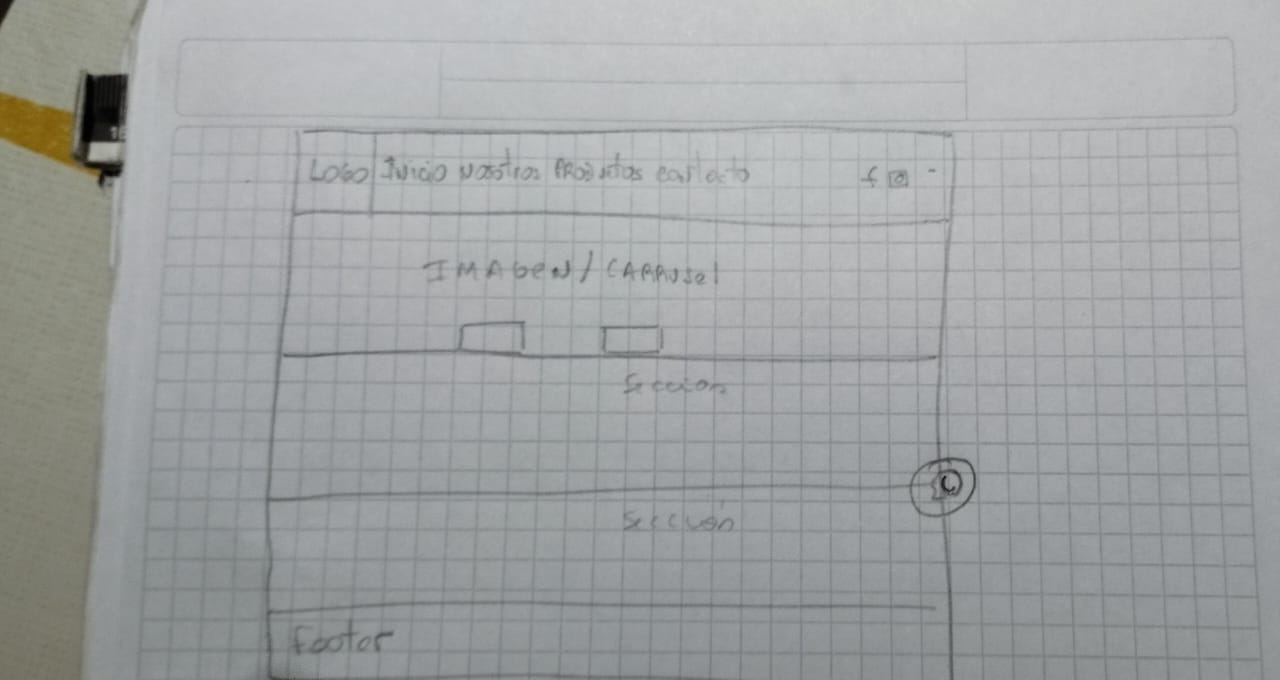 LOGO Inicio Nosotros PRODuctos contacto f
IMAGEN / CARRUSel
Seccion
Sección
Footer